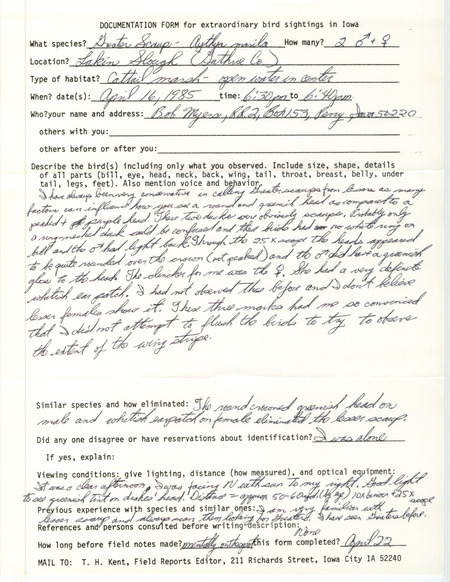 DOCUMENTATION FORM for extraordinary bird sightings in Iowa
What species? Greater Scaup - Aythya marila How many? 2 ♂ + ♀
Location? Lakin Slough (Guthrie Co)
Type of habitat? Cattail marsh - open water in center
When? date(s): April 16, 1985 time: 6:30pm to 6:40pm
Who?your name and address: Bob Myers, R.R.2, Box 153, Perry, Iowa 50220
others with you:
others before or after you:
Describe the bird(s) including only what you observed. Include size, shape, details
of all parts (bill, eye, head, neck, back, wing, tail, throat, breast, belly, under
tail, legs, feet). Also mention voice and behavior.
I have always been very conservative in calling Greater scaups from lessers as many
factors can influence how you see a round and greenish head as compared to a
peaked + purple head. These two ducks were obviously scaups. Probably only
a ring-necked duck could be confused and these birds had no white ring on
bill and the ♂ had light back. Through the 25X scope the heads appeared
to be quite rounded over the crown (not peaked) and the ♂ did have a greenish
gloss to the head. The clincher for me was the ♀. She had a very definite
whitish ear patch. I had not observed this before and I don't believe
lesser females show it. These three marks had me so convinced
that I did not attempt to flush the birds to try to observe
the extent of the wing stripe.
Similar species and how eliminated: The round crowned greenish head on
male and whitish earpatch on female eliminated the lesser scaup.
Did any one disagree or have reservations about identification? I was alone
If yes, explain:
Viewing conditions: give lighting, distance (how measured), and optical equipment:
It was a clear afternoon, I was facing N with sun to my right. Good light
to see greenish tint on drakes' head. Distance = approx 50-60 yd. (by eye) 10X binoc + 25X scope
Previous experience with species and similar ones: I am very familiar with
lesser scaup and always scan them looking for Greaters. I have seen Greaters before.
References and persons consulted before writing description: None
How long before field notes made? this form completed? April 22
MAIL TO: T. H. Kent, Field Reports Editor, 211 Richards Street, Iowa City IA 52240